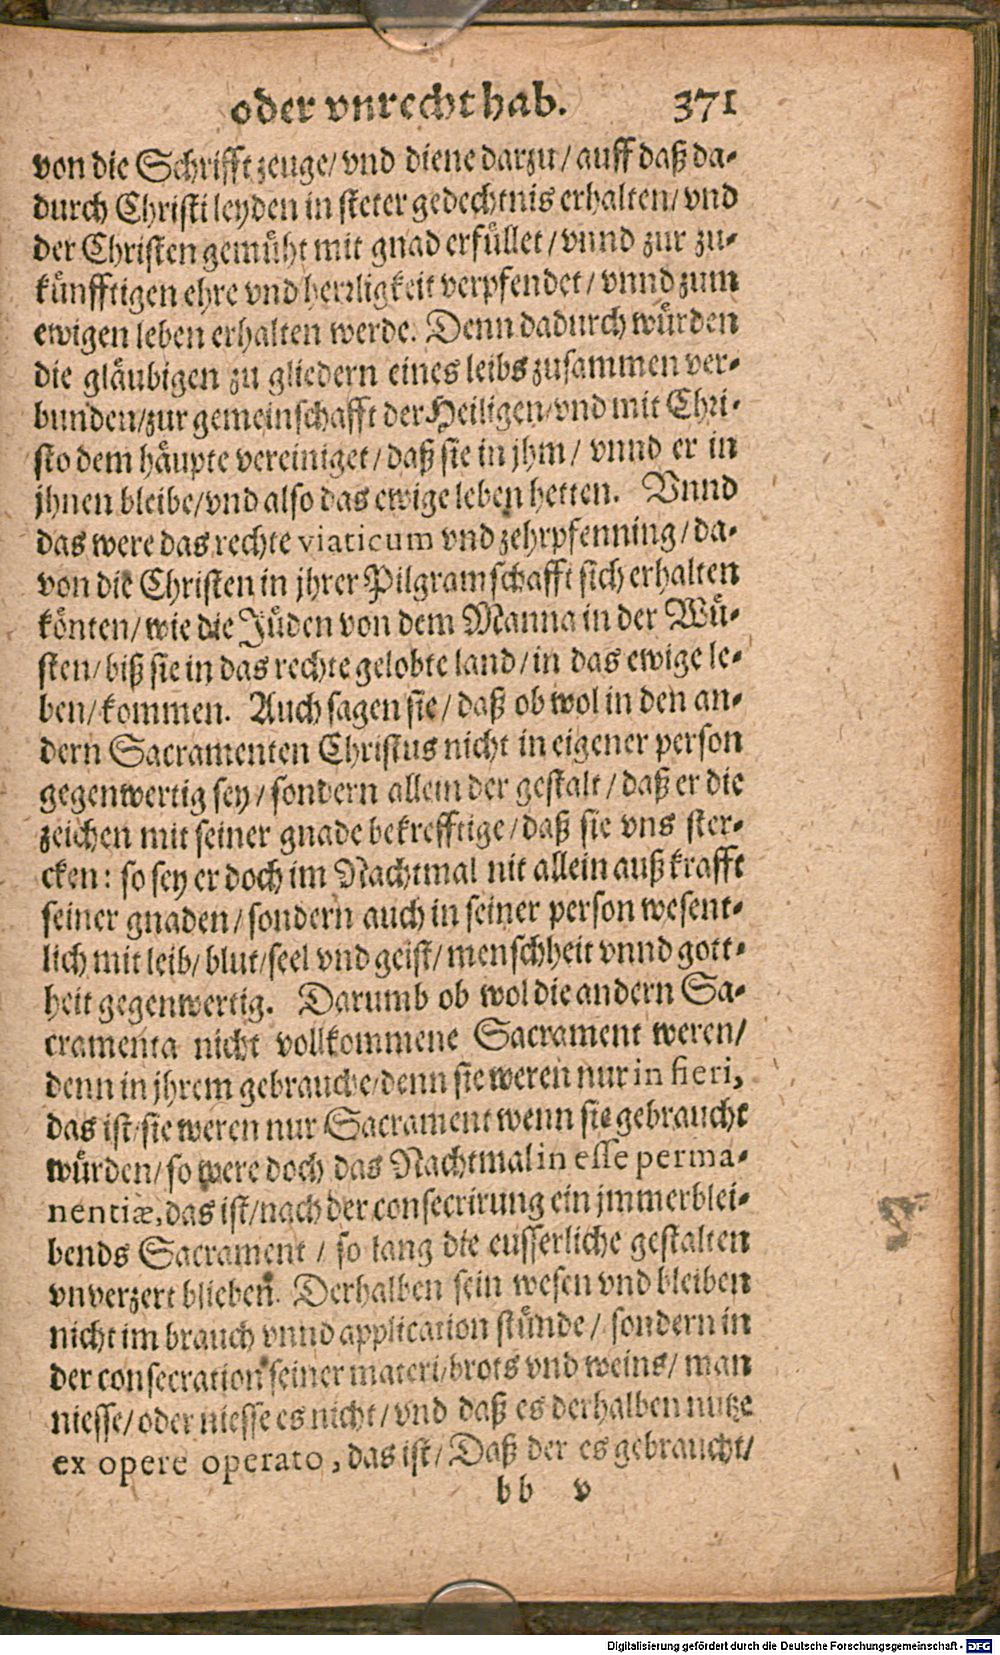 oder vnrecht hab. 371
von die Schrifft zeuge/ vnd diene darzu/ auff daß da-
durch Christi leyden in steter gedechtnis erhalten/ vnd
der Christen gemüht mit gnad erfüllet/ vnnd zur zu-
künfftigen ehre vnd herrligkeit verpfendet/ vnnd zum
ewigen leben erhalten werde. Denn dadurch würden
die gläubigen zu gliedern eines leibs zusammen ver-
bunden/ zur gemeinschafft der Heiligen/ vnd mit Chri-
sto dem häupte vereiniget/ daß sie in jhm/ vnnd er in
jhnen bleibe/ vnd also das ewige leben hetten. Vnnd
das were das rechte viaticum vnd zehrpfenning/ da-
von die Christen in jhrer Pilgramschafft sich erhalten
könten/ wie die Jüden von dem Manna in der Wü-
sten/ biß sie in das rechte gelobte land/ in das ewige le-
ben/ kommen. Auch sagen sie/ daß ob wol in den an-
dern Sacramenten Christus nicht in eigener person
gegenwertig sey/ sondern allein der gestalt/ daß er die
zeichen mit seiner gnade bekrefftige/ daß sie vns ster-
cken: so sey er doch im Nachtmal nit allein auß krafft
seiner gnaden/ sondern auch in seiner person wesent-
lich mit leib/ blut/ seel vnd geist/ menschheit vnnd gott-
heit gegenwertig. Darumb ob wol die andern Sa-
cramenta nicht vollkommene Sacrament weren/
denn in jhrem gebrauche/ denn sie weren nur in fieri,
das ist/ sie weren nur Sacrament wenn sie gebraucht
würden/ so were doch das Nachtmal in esse perma-
nentiæ, das ist/ nach der consecrirung ein jmmerblei-
bends Sacrament/ so lang die eusserliche gestalten
vnverzert blieben. Derhalben sein wesen vnd bleiben
nicht im brauch vnnd application stünde/ sondern in
der consecration seiner materi/ brots vnd weins/ man
niesse/ oder niesse es nicht/ vnd daß es derhalben nutze
ex opere operato, das ist/ Daß der es gebraucht/
bb v
Digitalisierung gefördert durch die Deutsche Forschungsgemeinschaft - DFG